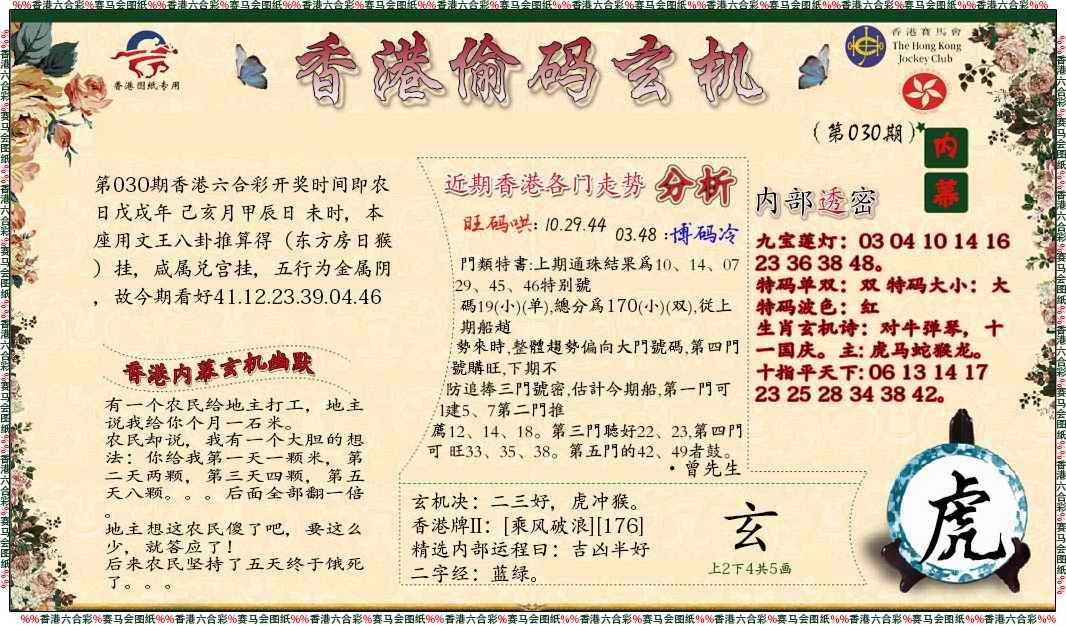 %%香港六合彩%赛马会图纸%%香港六合彩%赛马会图纸%%香港六合彩%赛马会图纸%%香港六合彩%赛马会图纸%%香港六合彩%赛马会图纸%%香港六合彩%赛马会图纸%%
香港图纸专用
香港偷码玄机
香港賽馬會
The Hong Kong
Jockey Club
(第030期)
内
幕
第030期香港六合彩开奖时间即农
日戊戌年 己亥月甲辰日 未时，本
座用文王八卦推算得（东方房日猴
）挂，咸属兑宫挂，五行为金属阴
，故今期看好41.12.23.39.04.46
香港内幕玄机幽默
有一个农民给地主打工，地主
说我给你个月一石米。
农民却说，我有一个大胆的想
法：你给我第一天一颗米，第
二天两颗，第三天四颗，第五
天八颗。。。后面全部翻一倍
。
地主想这农民傻了吧，要这么
少，就答应了！
后来农民坚持了五天终于饿死
了。。。
近期香港各门走势 分析
旺码哄: 10.29.44
03.48 :博码冷
門類特書:上期通珠結果爲10、14、07
29、45、46特别號
碼19(小)(单),總分爲170(小)(双),從上
期船趙
勢來時,整體趨勢偏向大門號碼,第四門
號購旺,下期不
防追捧三門號密,估計今期船,第一門可
1建5、7第二門推
薦12、14、18。第三門聽好22、23,第四門
可 旺33、35、38。第五門的42、49者鼓。
·曾先生
内部透密
九宝莲灯：03 04 10 14 16
23 36 38 48。
特码单双：双 特码大小：大
特码波色：红
生肖玄机诗：对牛弹琴，十
一国庆。主: 虎马蛇猴龙。
十指平天下: 06 13 14 17
23 25 28 34 38 42。
玄机决：二三好，虎冲猴。
香港牌II：[乘风破浪][176]
精选内部运程曰：吉凶半好
二字经：蓝绿。
玄
上2下4共5画
虎
%%香港六合彩%赛马会图纸%%香港六合彩%赛马会图纸%%香港六合彩%赛马会图纸%%香港六合彩%赛马会图纸%%香港六合彩%赛马会图纸%%香港六合彩%赛马会图纸%%